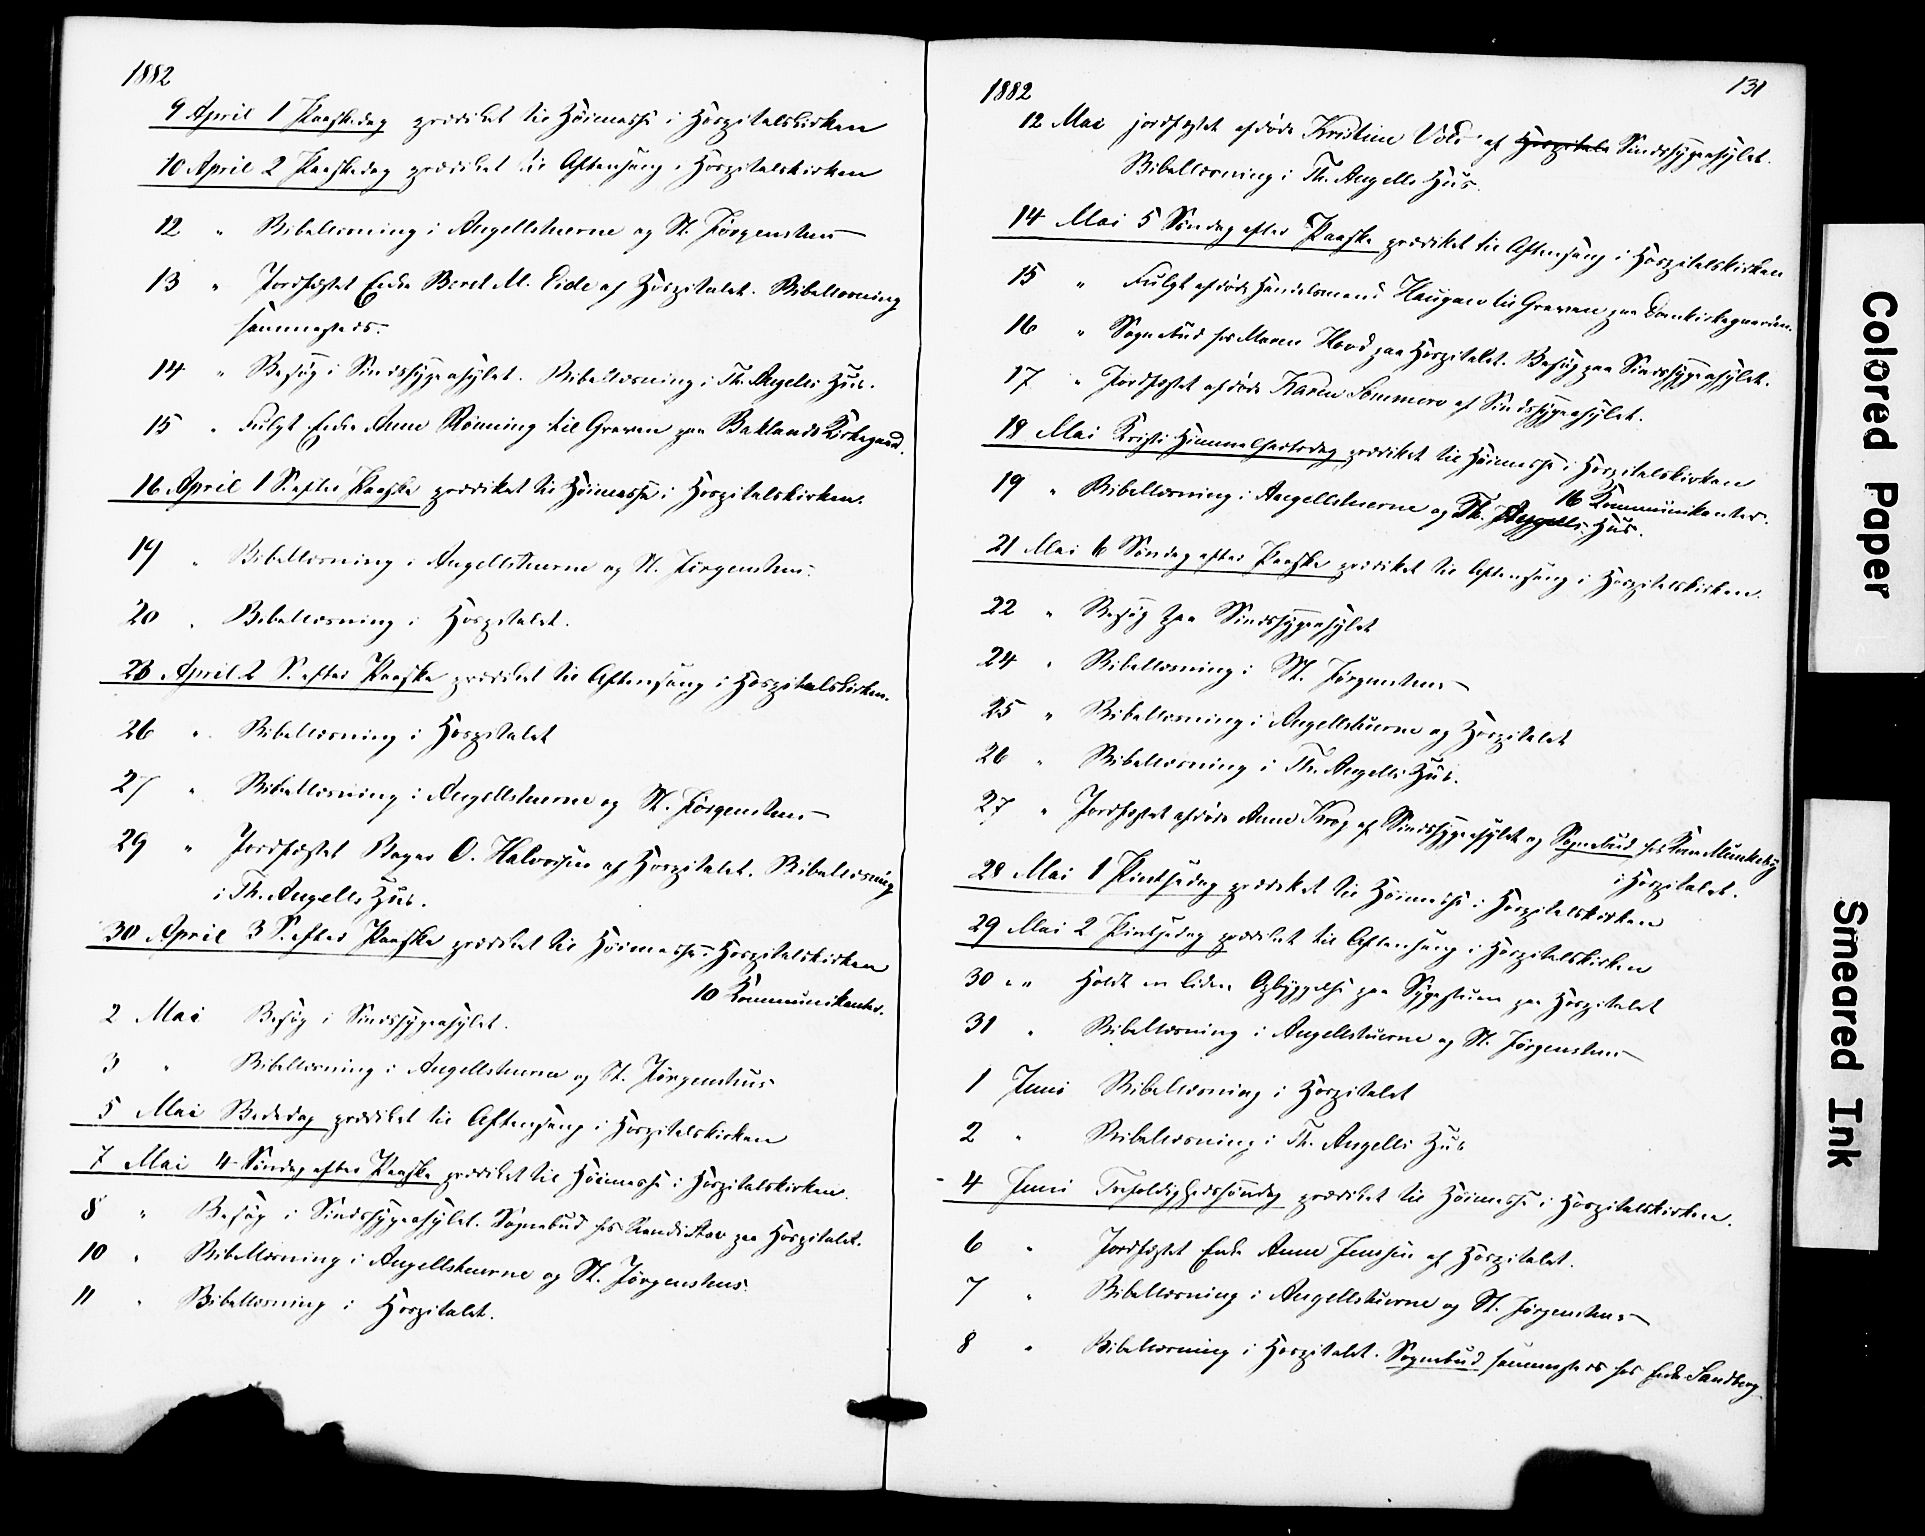 1882
9 April 1 Paaskedag prædiket til Høimesse i Hospitalskirken
10 April 2 Paaskedag prædiket til Aftensang i Hospitalskirken
12 " Bibellæsning i Angellstuerne og St. Jørgenshus
13 " Jordfæstet Enke Beret M. Eide af Hospitalet. Bibellæsning
sammesteds.
14 " Besøg i Sindssygeasylet. Bibellæsning i Th. Angells Hus.
15 " Fulgt Enke Anne Rönning til Graven paa Baklands Kirkegaard.
16 April 1 S. efter Paaske prædiket til Høimesse i Hospitalskirken.
19 " Bibellæsning i Angellstuerne og St. Jørgenshus.
20 " Bibellæsning i Hospitalet.
23 April 2 S. efter Paaske prædiket til Aftensang i Hospitalskirken.
26 " Bibellæsning i Hospitalet
27 " Bibellæsning i Angellstuerne og St. Jørgenshus
29 " Jordfæstet Bager O. Halvorsen af Hospitalet. Bibellæsning
i Th. Angells Hus.
30 April 3 S. efter Paaske prædiket til Høimesse i Hospitalskirken
10 Kommunikanter.
2 Mai Besøg i Sindssygeasylet.
3 " Bibellæsning i Angellstuerne og St. Jørgenshus
5 Mai Bededag prædiket til Aftensang i Hospitalskirken
7 Mai 4 Søndag efter Paaske prædiket til Høimesse i Hospitalskirken.
8 " Besøg i Sindssygeasylet. Sognebud hos Randi Aar paa Hospitalet.
10 " Bibellæsning i Angellstuerne og St. Jørgenshus.
11 " Bibellæsning i Hospitalet.
1882
131
12 Mai jordfæstet afdøde Kristine Vold af Hospitale Sindssygeasylet.
Bibellæsning i Th. Angells Hus.
14 Mai 5 Søndag efter Paaske prædiket til Aftensang i Hospitalskirken
15 " Fulgt afdøde Handelsmand Haugan til Graven paa Domkirkegaarden.
16 " Sognebud hos Maren Hovd paa Hospitalet. Besøg paa Sindssygeasylet.
17 " Jordfæstet afdøde Karen Sommero af Sindssygeasylet.
18 Mai Kristi Himmelfartsdag prædiket til Høimesse i Hospitalskirken
16 Kommunikanter.
19 " Bibellæsning i Angellstuerne og Th. Angells Hus.
21 Mai 6 Søndag efter Paaske prædiket til Aftensang i Hospitalskirken.
22 " Besøg paa Sindssygeasylet
24 " Bibellæsning i St. Jørgenshus
25 " Bibellæsning i Angellstuerne og Hospitalet
26 " Bibellæsning i Th. Angells Hus.
27 " Jordfæstet afdøde Anne Krog af Sindssygeasylet og Sognebud hos Munkeby
i Hospitalet.
28 Mai 1 Pintsedag prædiket til Høimesse i Hospitalskirken
29 Mai 2 Pintsedag prædiket til Aftensang i Hospitalskirken
30 " " Holdt en liden Opbyggelse paa Sygestuen paa Hospitalet
31 " Bibellæsning i Angellstuerne og St. Jørgenshus
1 Juni Bibellæsning i Hospitalet
2 " Bibellæsning i Th. Angells Hus
4 Juni Trefoldighedssøndag prædiket til Høimesse i Hospitalskirken.
6 " Jordfæstet Enke Anne Jenssen af Hospitalet.
7 " Bibellæsning i Angellstuerne og St. Jørgenshus
8 " Bibellæsning i Hospitalet. Sognebud sammesteds hos Enke Sandberg
Colored Paper
Smeared Ink